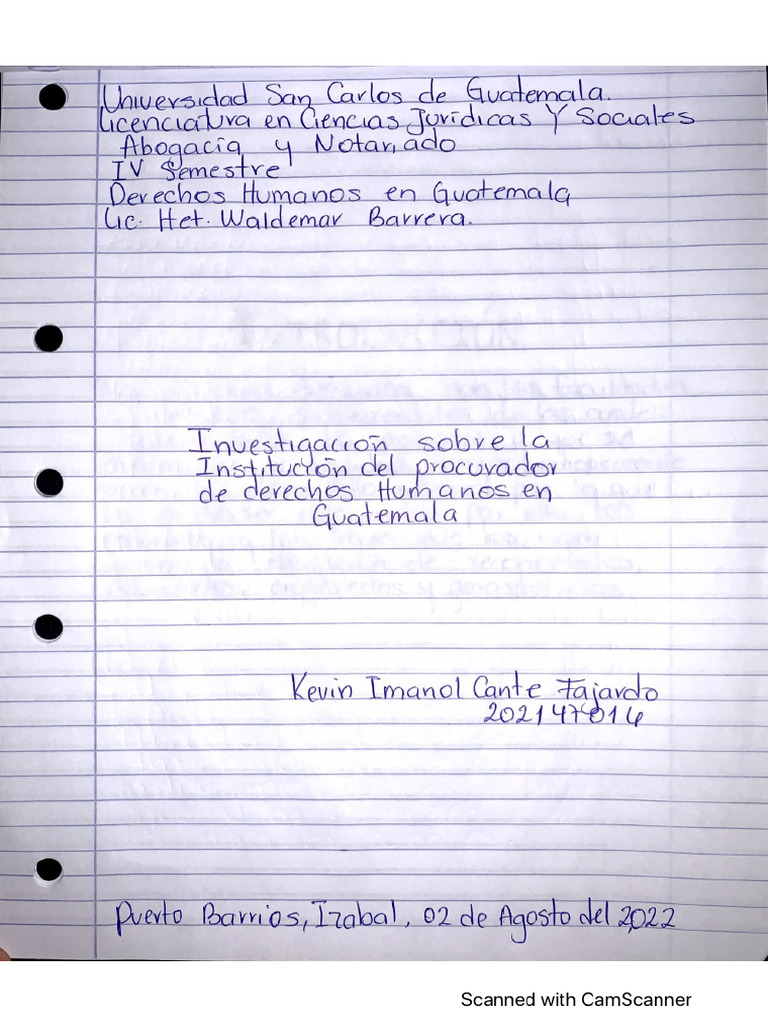 Universidad San Carlos de Guatemala.
Licenciatura en Ciencias Jurídicas Y Sociales
Abogacía y Notariado
IV Semestre
Derechos Humanos en Guatemala
Lic. Het. Waldemar Barrera.
Investigación sobre la
Institución del procurador
de derechos Humanos en
Guatemala
Kevin Imanol Cante Fajardo
202147014
Puerto Barrios, Izabal, 02 de Agosto del 2,022
Scanned with CamScanner